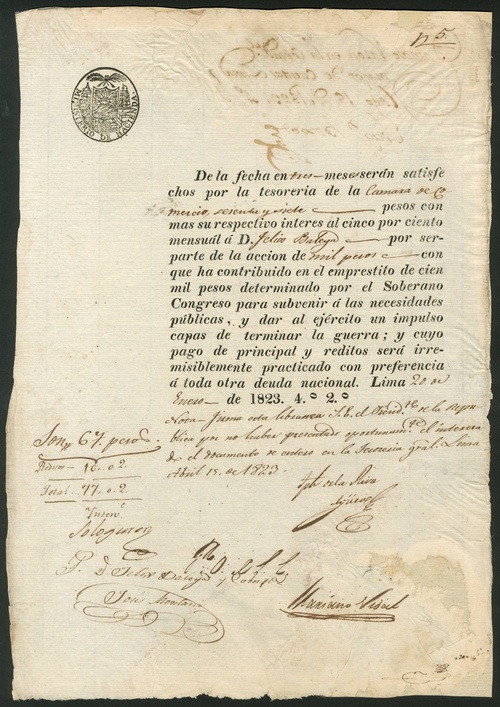 N 5.
MINISTERIO DE HACIENDA
De la fecha en tres meses serán satisfe
chos por la tesoreria de la Camara de Co
mercio, sesenta y siete pesos con
mas su respectivo interes al cinco por ciento
mensuál á D. Felix Balega por ser
parte de la accion de mil pesos con
que ha contribuido en el emprestito de cien
mil pesos determinado por el Soberano
Congreso para subvenir á las necesidades
públicas, y dar al ejército un impulso
capas de terminar la guerra; y cuyo
pago de principal y reditos será irre-
misiblemente practicado con preferencia
á toda otra deuda nacional. Lima 20 de
Enero de 1823. 4.º 2.º
Nota- firma esta libranza S.E. el Presid.te de la Repu
blica por no haber presentado oportunam.te el interesa
do el documento de entero en la Tesoreria gral. Lima
Abril 15. de 1823.
Son 67. pesos
10. 0. 2
Total 77. 0. 2
de la Riva
Agüero
P. D. Felix Balega y Comp.a
José Montan
Mariano Vidal